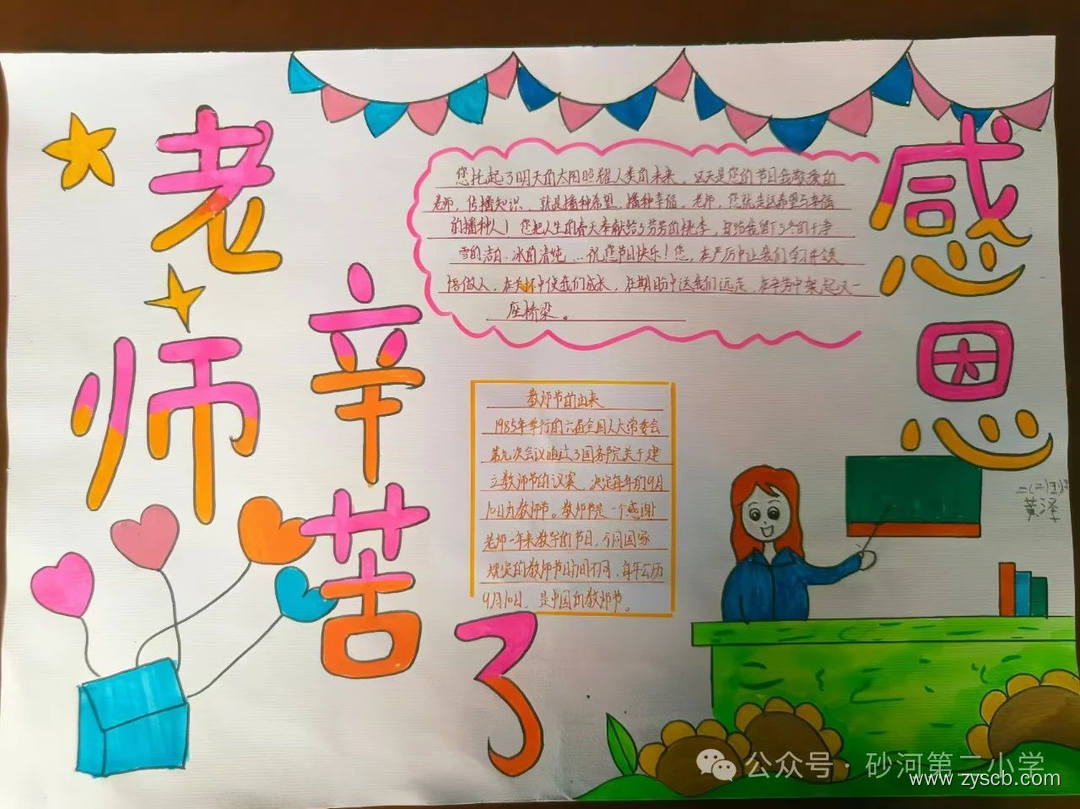 感恩
老师辛苦了
您托起了明天的太阳照耀人类的未来。这天是您的节日我敬爱的
老师,传播知识,就是播种希望,播种幸福。老师,您就是这希望与幸福
的播种人!您把人生的春天奉献给了芬芳的桃李,却给我留下了冬的干净
雪的洁白、冰的清纯…祝您节日快乐!您,在严历中让我们学
做人,在关怀中使我们成长,在期盼中送我们远走,在辛劳中架起又一
座桥梁。
教师节的由来
1985年举行的六届全国人大常委会
第九次会议通过了国务院关于建
立教师节的议案,决定每年的9月
10日为教师节。教师节是一个感谢
老师一年来教学的节日,不同国家
规定的教师节时间不同,每年公历
9月10日,是中国的教师节。
二(二)班
黄泽
公众号·砂河第二小学
www.zyscb.com